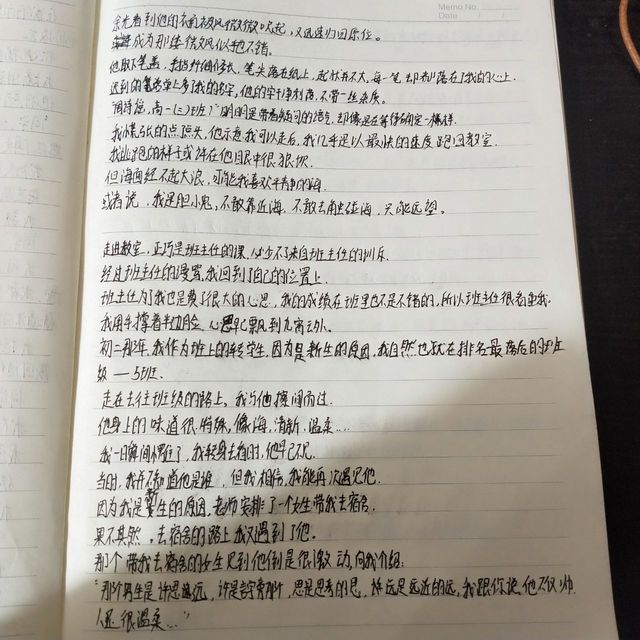 Memo No.
Date / /
余光看到他的衣角被风微微吹起，又迅速归回原位。
成为那缕微风似乎也不错。
他取下笔盖，手指纤细修长，笔尖落在纸上，起伏并不大，每一笔却都落在了我的心上。
迟到的登记本上多了我的名字，他的字干净利落，不带一丝杂质。
"周诗悠，高一（三）班？"明明是带着疑问的语气，却像是在等待确定一样。
我慌张的点点头，他示意我可以走后，我几乎是以最快的速度跑回教室。
我逃跑的样子或许在他眼中很狼狈。
但海面经不起大浪，可能我喜欢平静的海。
或者说，我是胆小鬼，不敢靠近海，不敢去触碰海，只能远望。
走进教室，正巧是班主任的课，少不了来自班主任的训斥
经过班主任的谩骂，我回到了自己的位置上。
班主任为了我也是费了很大的心思，我的成绩在班里也不是不错的，所以班主任很看重我。
我用手撑着半边脸，心思早已飘到九霄云外。
初二那年，我作为班上的转学生，因为是新生的原因，我自然也就在排名最落后的班
级——5班
走在去往班级的路上，我与他擦肩而过。
他身上的味道很特殊，像海，清新，温柔....
我一瞬间愣住了，我转身去看时，他早已不见
当时，我并不知道他是谁，但我相信，我能再次遇见他
因为我是新生的原因，老师安排了一个女生带我去宿舍
果不其然，去宿舍的路上我又遇到了他。
那个带我去宿舍的女生见到他倒是很激动，向我介绍：
"那个男生是许思远，许是言字旁那个，思是思考的思，远是远近的远，我跟你说，他不仅帅，
人还很温柔..."